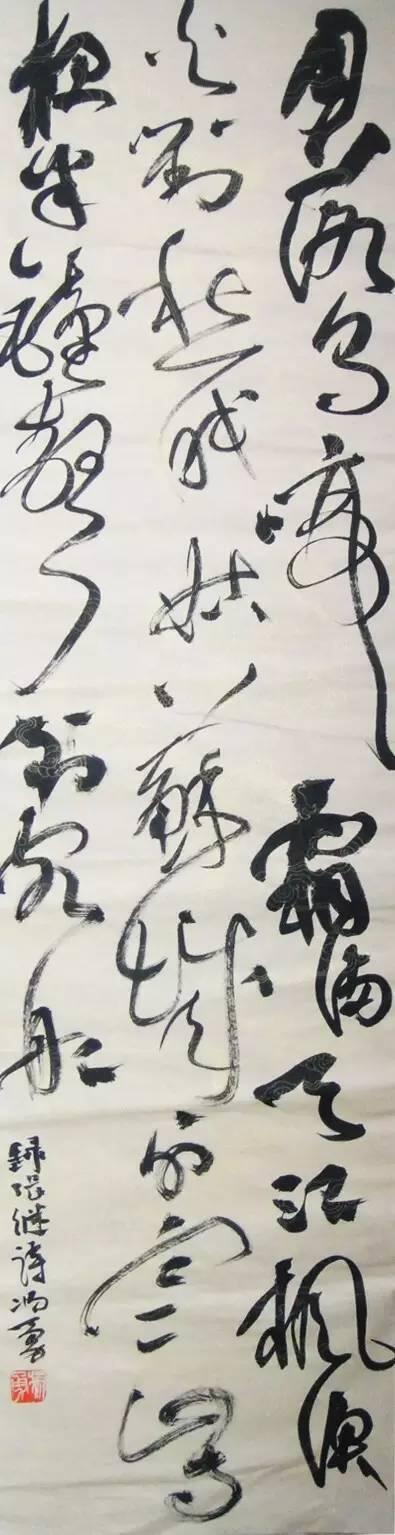 月落烏啼霜滿天江楓漁
火對愁眠姑蘇城外寒山寺
夜半鐘聲到客船
錄張継詩冯勇